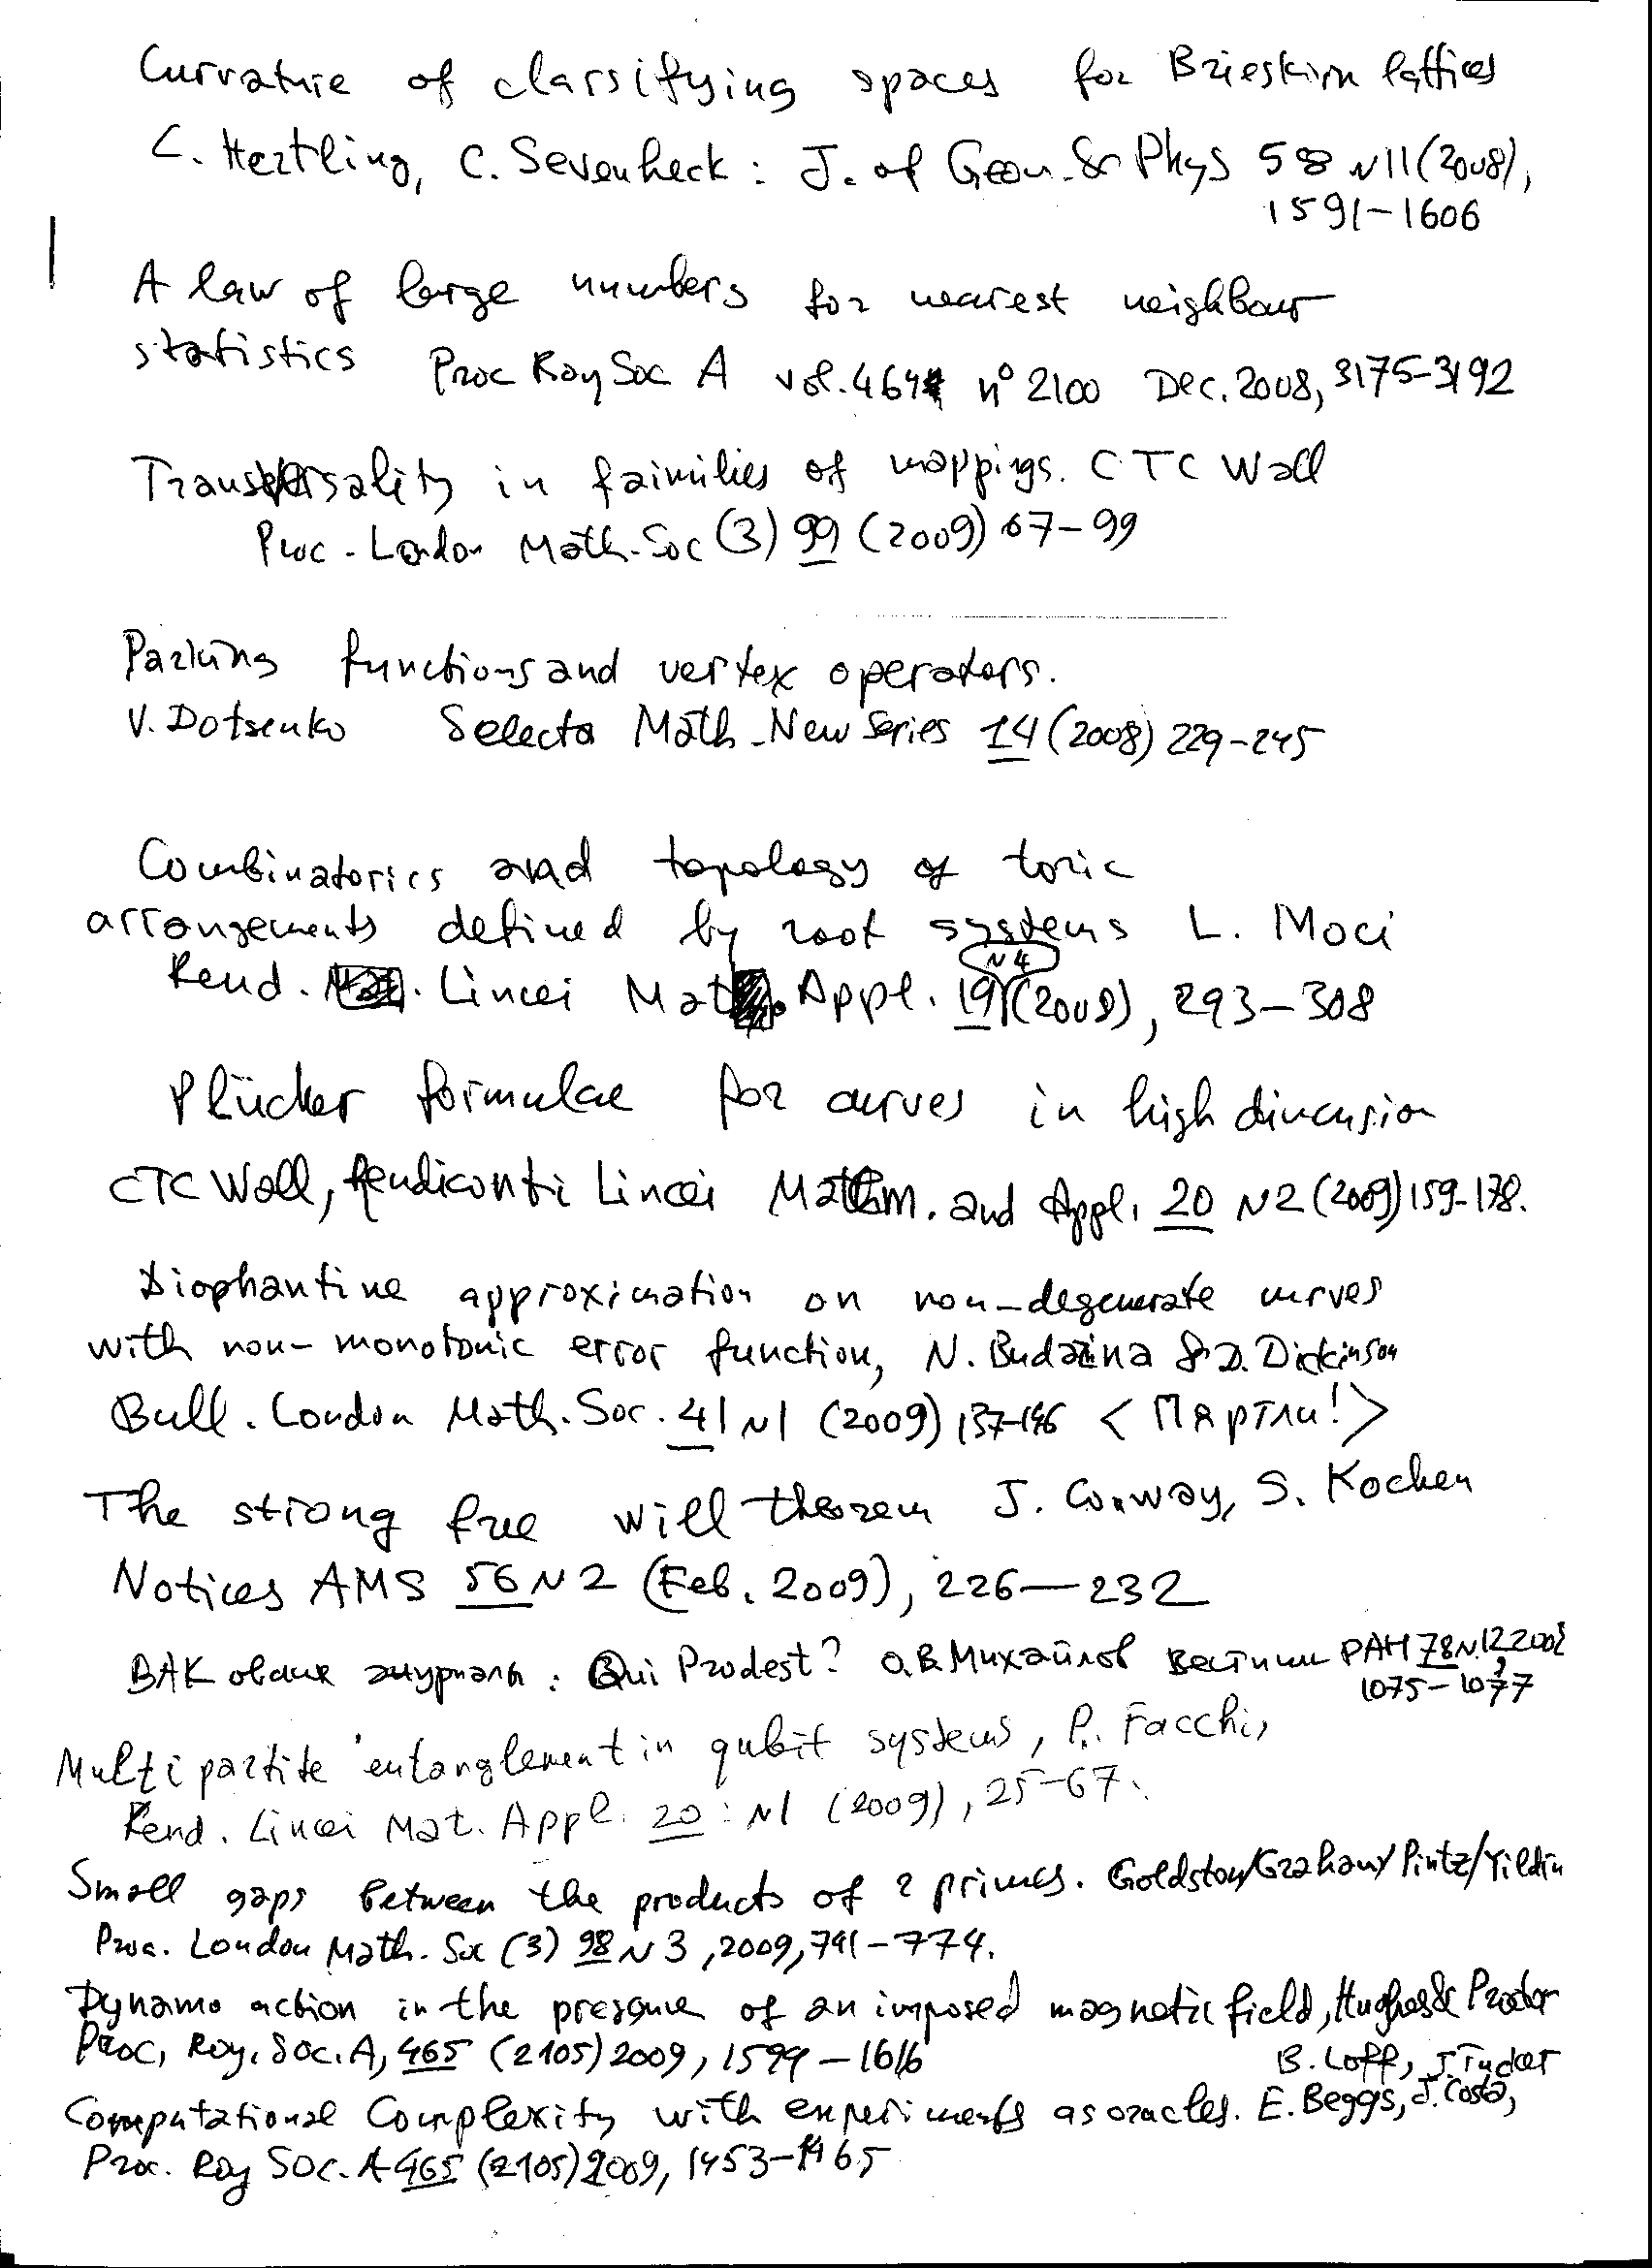 Curvature of classifying spaces for Brieskorn lattices
C. Hertling, C. Sevenheck: J. of Geom. & Phys 58 N11 (2008),
1591-1606
A law of large numbers for nearest neighbour
statistics Proc Roy Soc A vol. 464 n° 2100 Dec. 2008, 3175-3192
Transversality in faimilies of mappings. CTC Wall
Proc. London Math. Soc (3) 99 (2009) 67-99
Parking functions and vertex operators.
V. Dotsenko Selecta Math. New Series 14 (2008) 229-245
Combinatorics and topology of toric
arrangements defined by root systems L. Moci
Rend. Lincei Mat. Appl. 19 N4 (2008), 293-308
Plücker formulae for curves in high dimension
CTC Wall, Rendiconti Lincei Mathm. and Appl. 20 N2 (2009) 159-178.
Diophantine approximation on non-degenerate curves
with non-monotonic error function, N. Budarina & D. Dickinson
Bull. London Math. Soc. 41 N1 (2009) 137-146 < Пяртли! >
The strong free will theorem J. Conway, S. Kochen
Notices AMS 56 N2 (Feb. 2009), 226-232
ВАКовские журналы: Qui Prodest? О.В. Михайлов Вестник РАН 78 N.12 2008,
1075-1077
Multipartite entanglement in qubit systems, P. Facchi,
Rend. Lincei Mat. Appl. 20: N1 (2009), 25-67.
Small gaps between the products of 2 primes. Goldston/Graham/Pintz/Yildin
Proc. London Math. Soc (3) 98 N3, 2009, 741-774.
Dynamo action in the presence of an imposed magnetic field, Hughes & Proctor
Proc. Roy. Soc. A, 465 (2105) 2009, 1599-1616
B. Loff, J. Tucker
Computational Complexity with experiments as oracles. E. Beggs, J. Costa,
Proc. Roy Soc. A 465 (2105) 2009, 1453-1465